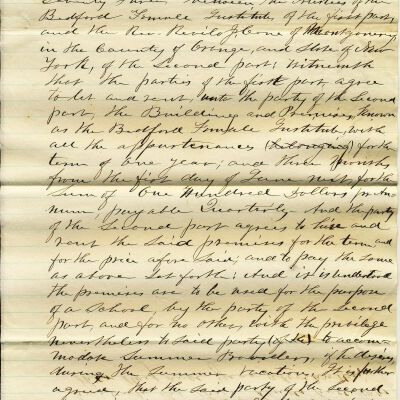 Seventy three between the Trustees of the
Bedford Female Institute, of the first part,
and the Rev. Revilo J. Cone of Montgomery
in the County of Orange, and State of New
York, of the Second part; Witnesseth
that the parties of the first part agree
to let and rent, unto the party of the Second
part, the Buildings and Premises, known
as the Bedford Female Institute, with
all the appurtenances for the
term of one year, and three Months,
from the first day of June next for the
Sum of One Hundred Dollars pr An-
num, payable Quarterly And the party
of the Second part agrees to hire and
rent the said premises for the term and
for the price afore said, and to pay the same
as above set forth; And it is understood
the premises are to be used for the purpose
of a School, by the party of the Second
part, and for no other, with the privilege
nevertheless to said party to accom-
modate Summer Boarders, if he desires,
during the Summer Vacation. It is further
agreed, that the said party of the Second